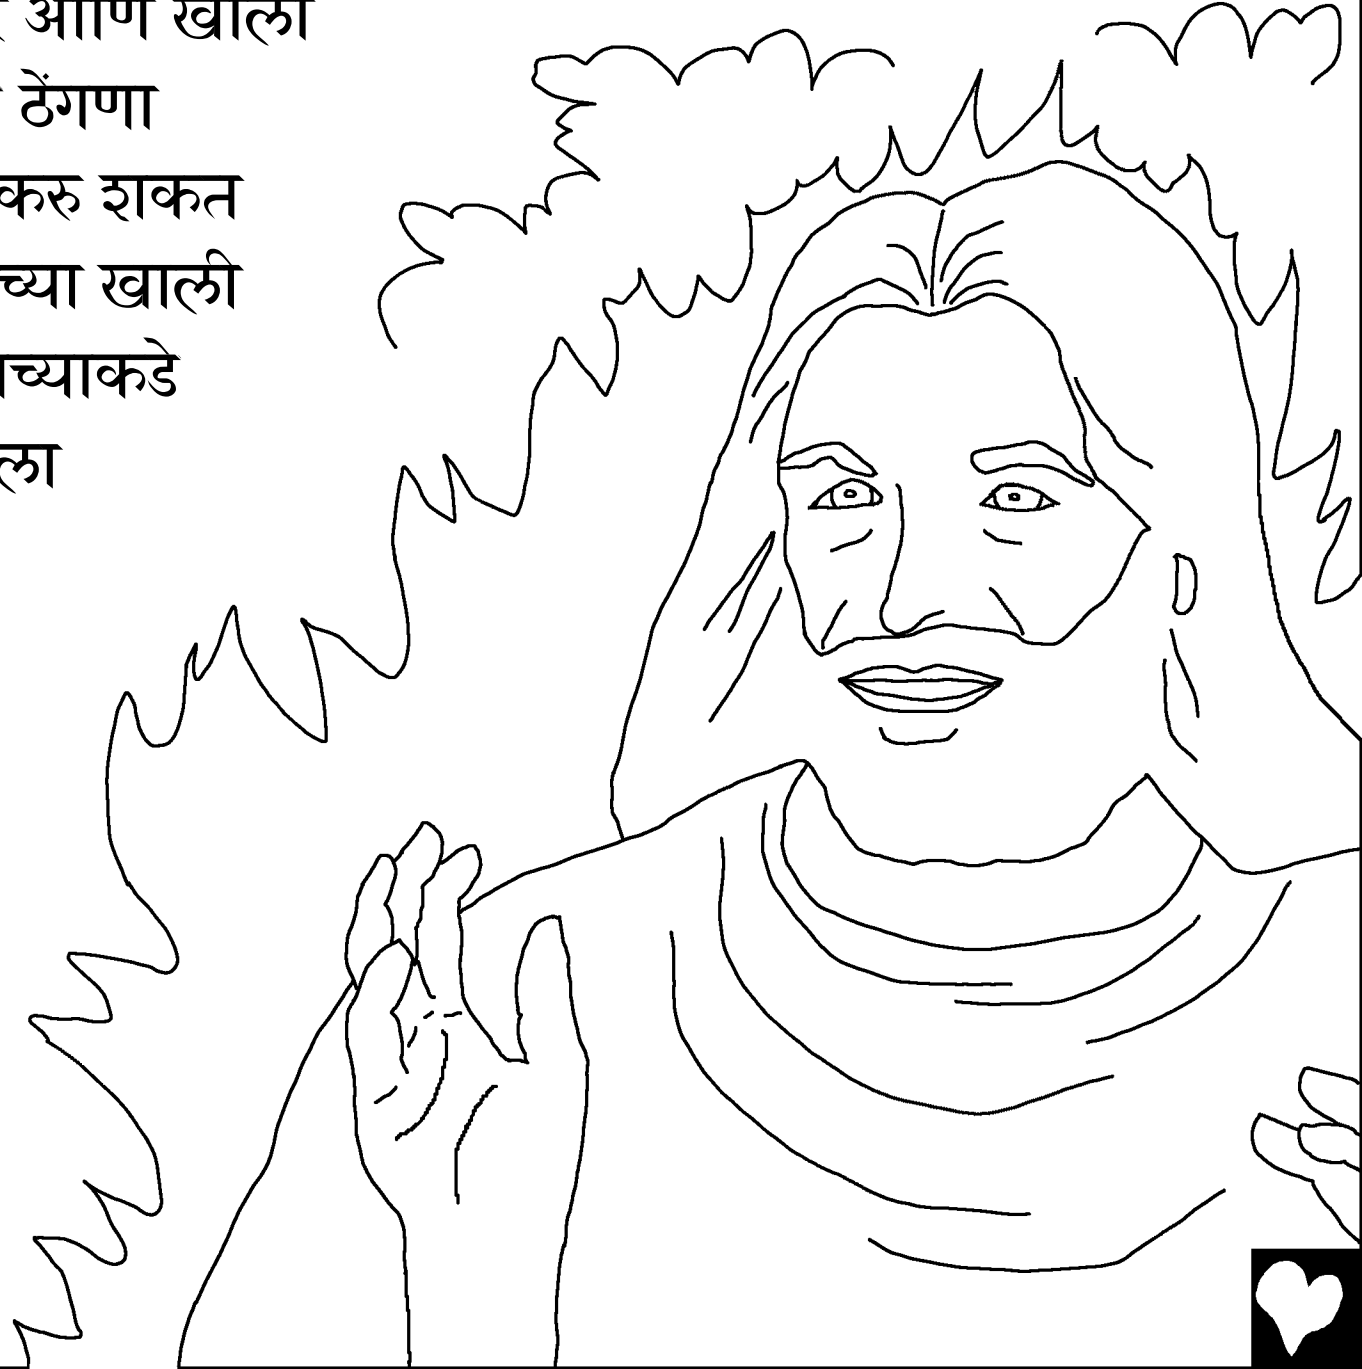 आणि खाली
ठेंगणा
करु शकत
च्या खाली
च्याकडे
ला